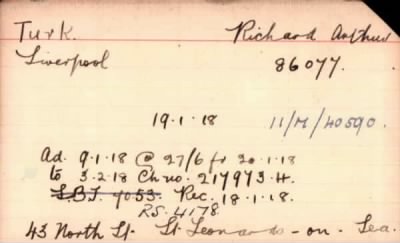 Turk. Richard Arthur
Liverpool 86077.
19.1.18 11/M/40590.
Ad. 9.1.18 @ 27/6 fr 20.1.18
to 3.2.18 Ch no. 217973.H.
L.B.J. 4053. Rec. 18.1.18.
RS. 4178
43 North St. St Leonards-on-Sea.